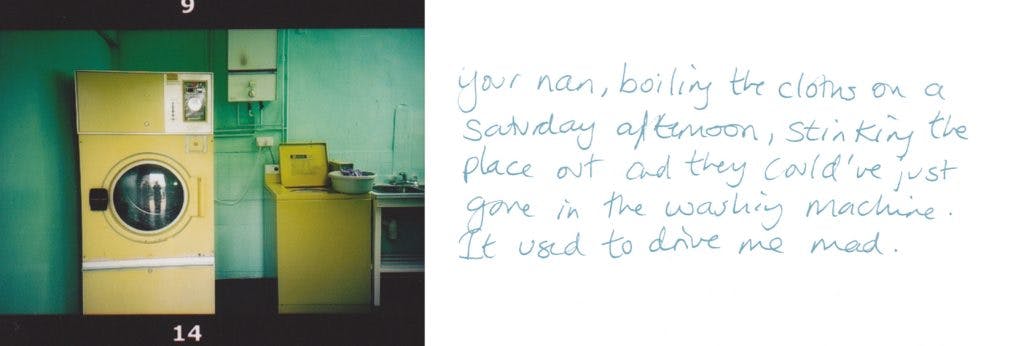 9
your nan, boiling the cloths on a
Saturday afternoon, stinking the
place out and they could've just
gone in the washing machine.
It used to drive me mad.
14